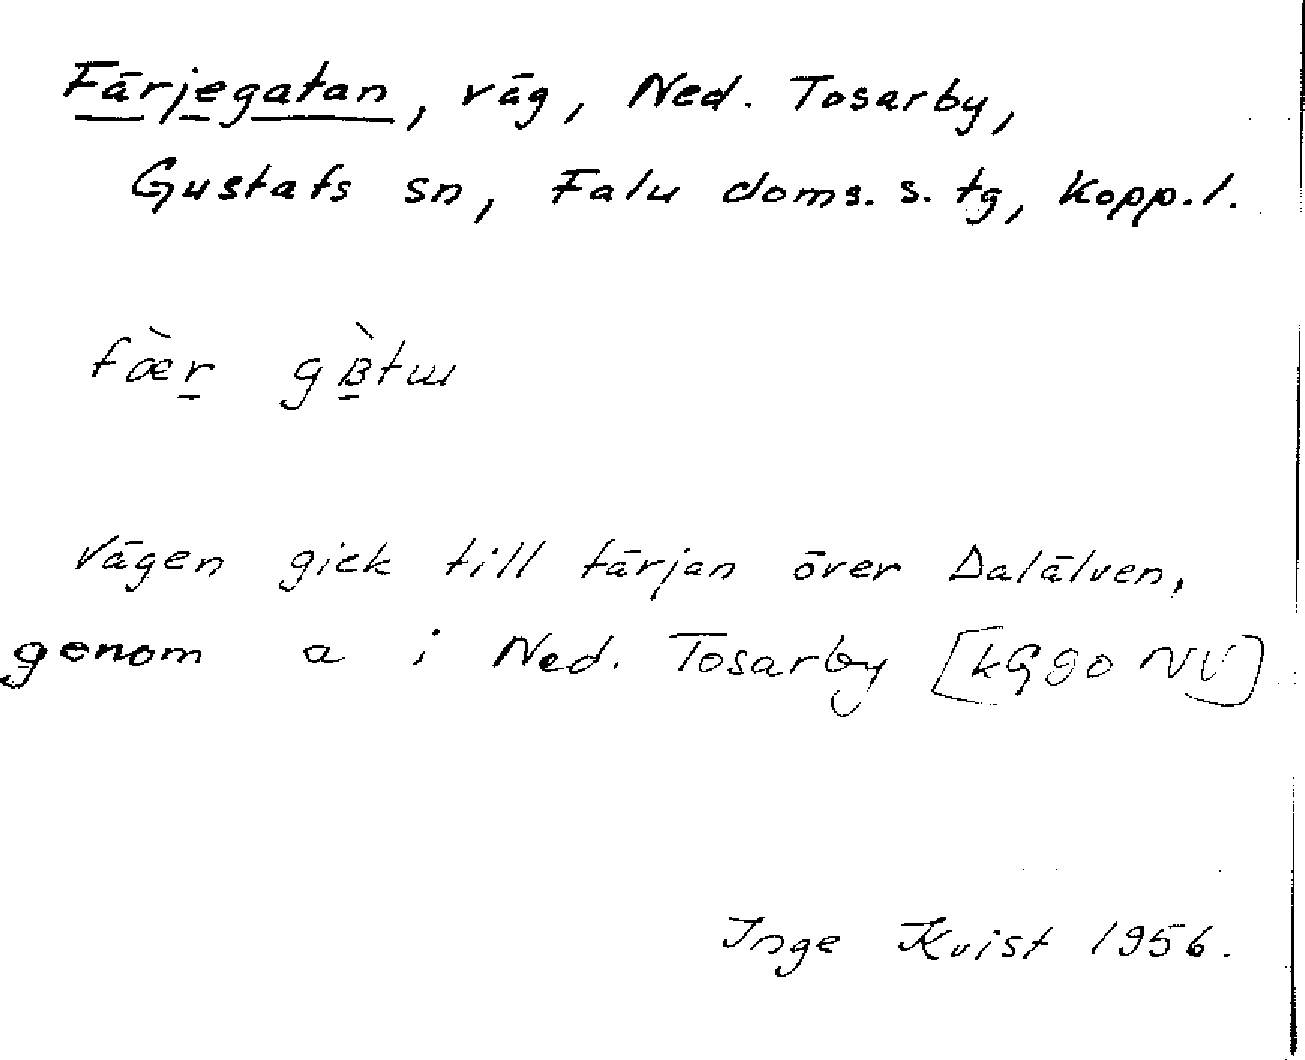 Färjegatan, väg, Ned. Tosarby,
Gustafs sn, Falu doms. s. tg, Kopp.l.
fæ̀r gʙ̀tɯ
Vägen gick till färjan över Dalälven,
genom a i Ned. Tosarby [kG90 NV]
Inge Kvist 1956.